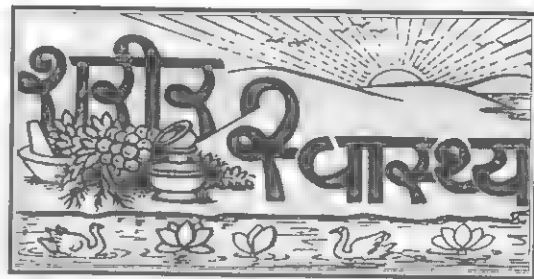 शरीर
स्वास्थ्य